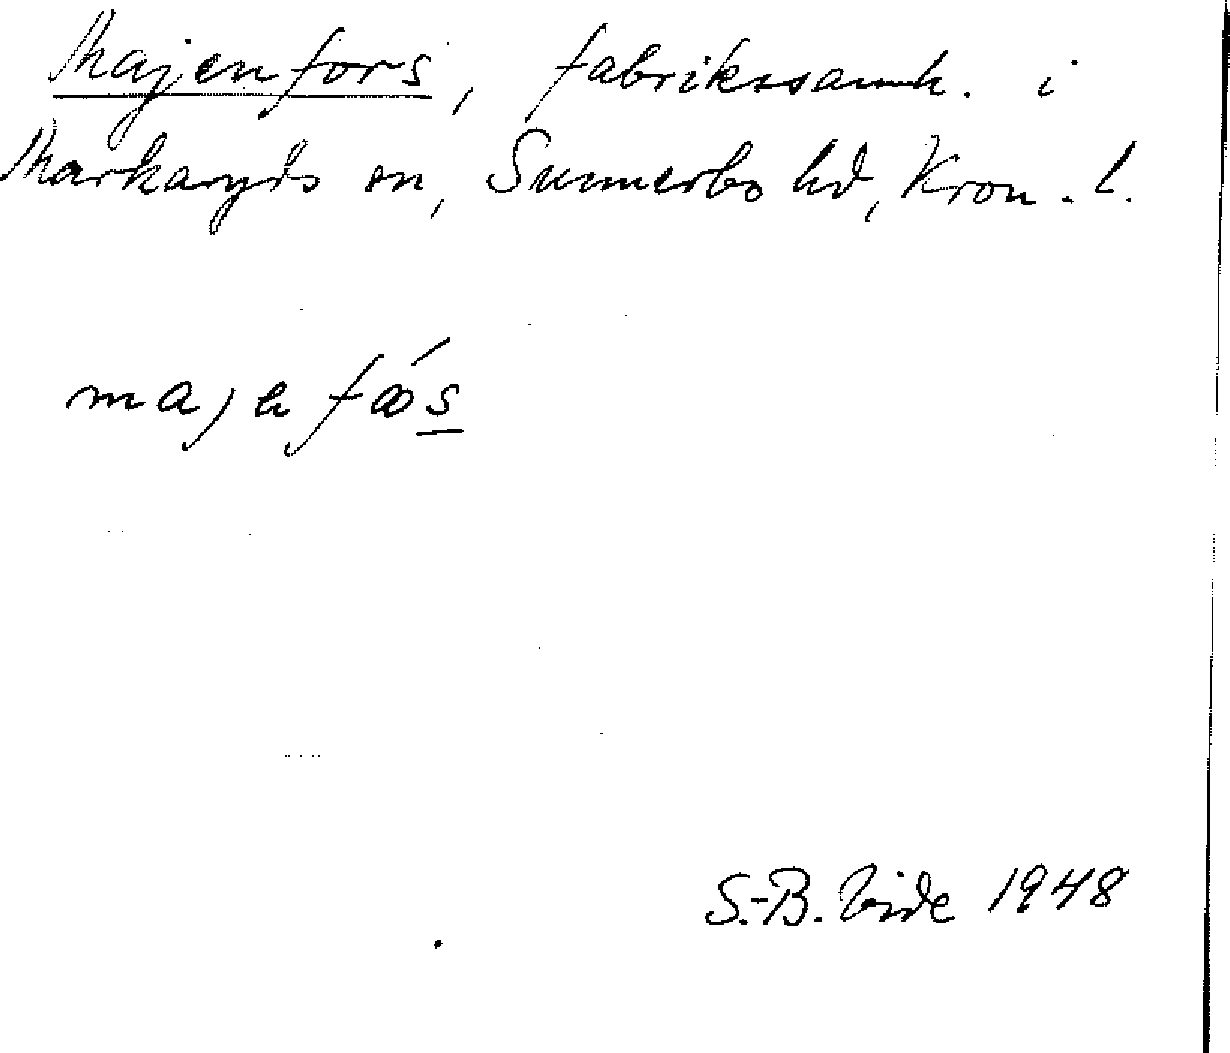 Majenfors, fabrikssamh. i
Markaryds sn, Sunnerbo hd, Kron. l.
S.-B. Vide 1948